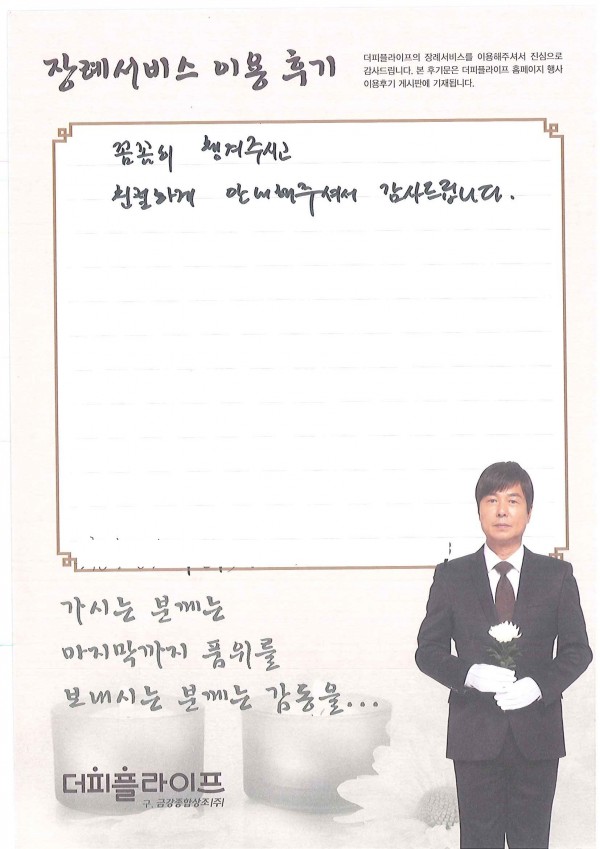 장례서비스 이용 후기
더피플라이프의 장례서비스를 이용해주셔서 진심으로
감사드립니다. 본 후기문은 더피플라이프 홈페이지 행사
이용후기 게시판에 기재됩니다.
꼼꼼히 챙겨주시고
친절하게 안내해주셔서 감사드립니다.
가시는 분께는
마지막까지 품위를
보내시는 분께는 감동을...
더피플라이프
구. 금강종합상조(주)